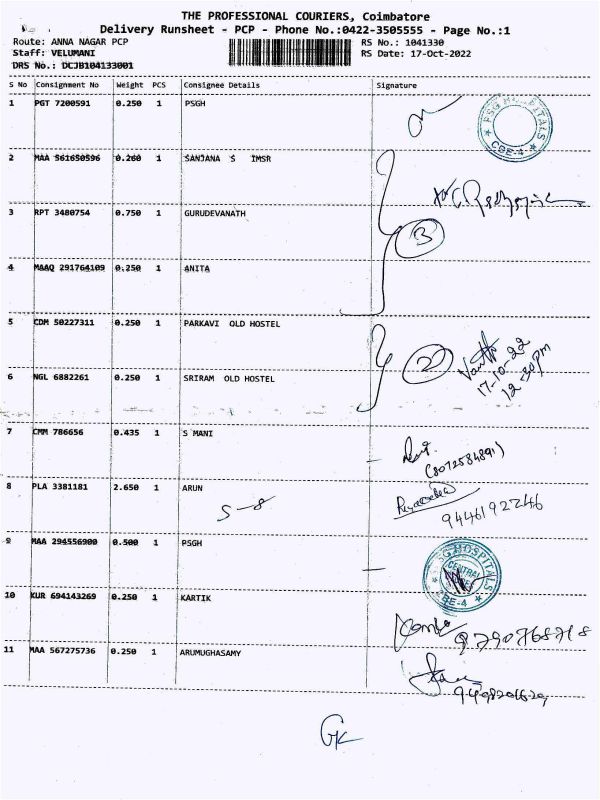 THE PROFESSIONAL COURIERS, Coimbatore
Delivery Runsheet - PCP - Phone No.:0422-3505555 - Page No.:1
Route: ANNA NAGAR PCP RS No.: 1041330
Staff: VELUMANI RS Date: 17-Oct-2022
DRS No.: DCJB104133001
S No Consignment No Weight PCS Consignee Details Signature
1 PGT 7200591 0.250 1 PSGH
PSG HOSPITALS CBE-4
2 MAA 561650596 0.260 1 SANJANA S IMSR
3 RPT 3480754 0.750 1 GURUDEVANATH
3
4 MAAQ 291764109 0.250 1 ANITA
5 CDM 50227311 0.250 1 PARKAVI OLD HOSTEL
2
17-10-22
12-30pm
6 NGL 6882261 0.250 1 SRIRAM OLD HOSTEL
7 CMM 786656 0.435 1 S MANI
(8072584891)
8 PLA 3381181 2.650 1 ARUN
S-8
9446192246
9 MAA 294556900 0.500 1 PSGH
PSG HOSPITALS CENTRAL CBE-4
10 KUR 694143269 0.250 1 KARTIK
9790768718
11 MAA 567275736 0.250 1 ARUMUGHASAMY
GK